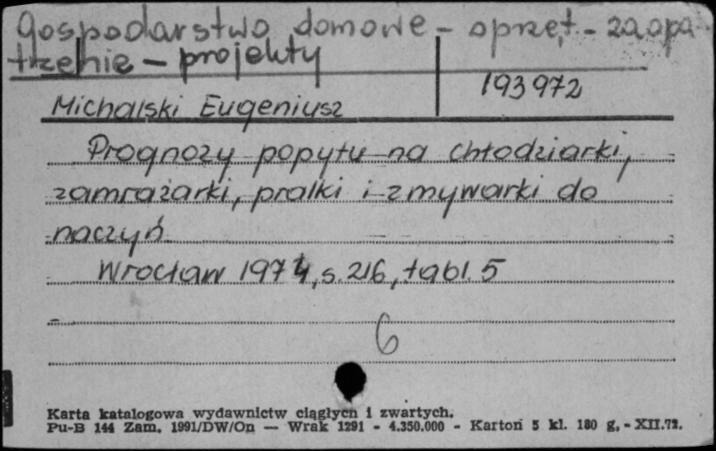 Gospodarstwo domowe - sprzęt - zaopa
trzenie - projekty
193972
Michalski Eugeniusz
Prognozy popytu na chłodziarki,
zamrażarki, pralki i zmywarki do
naczyń
Wrocław 1974, s. 216, tabl. 5
6
Karta katalogowa wydawnictw ciągłych i zwartych.
Pu-B 144 Zam. 1991/DW/On — Wrak 1291 - 4.350.000 - Karton 5 kl. 180 g. - XII.72.